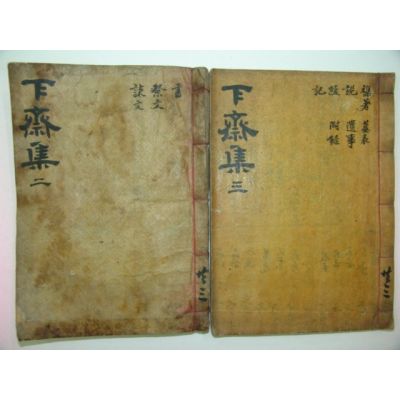 下齋集 二
書
祭文
誄文
共三
下齋集 三
雜著 墓表
說 遺事
跋 附錄
記
共三